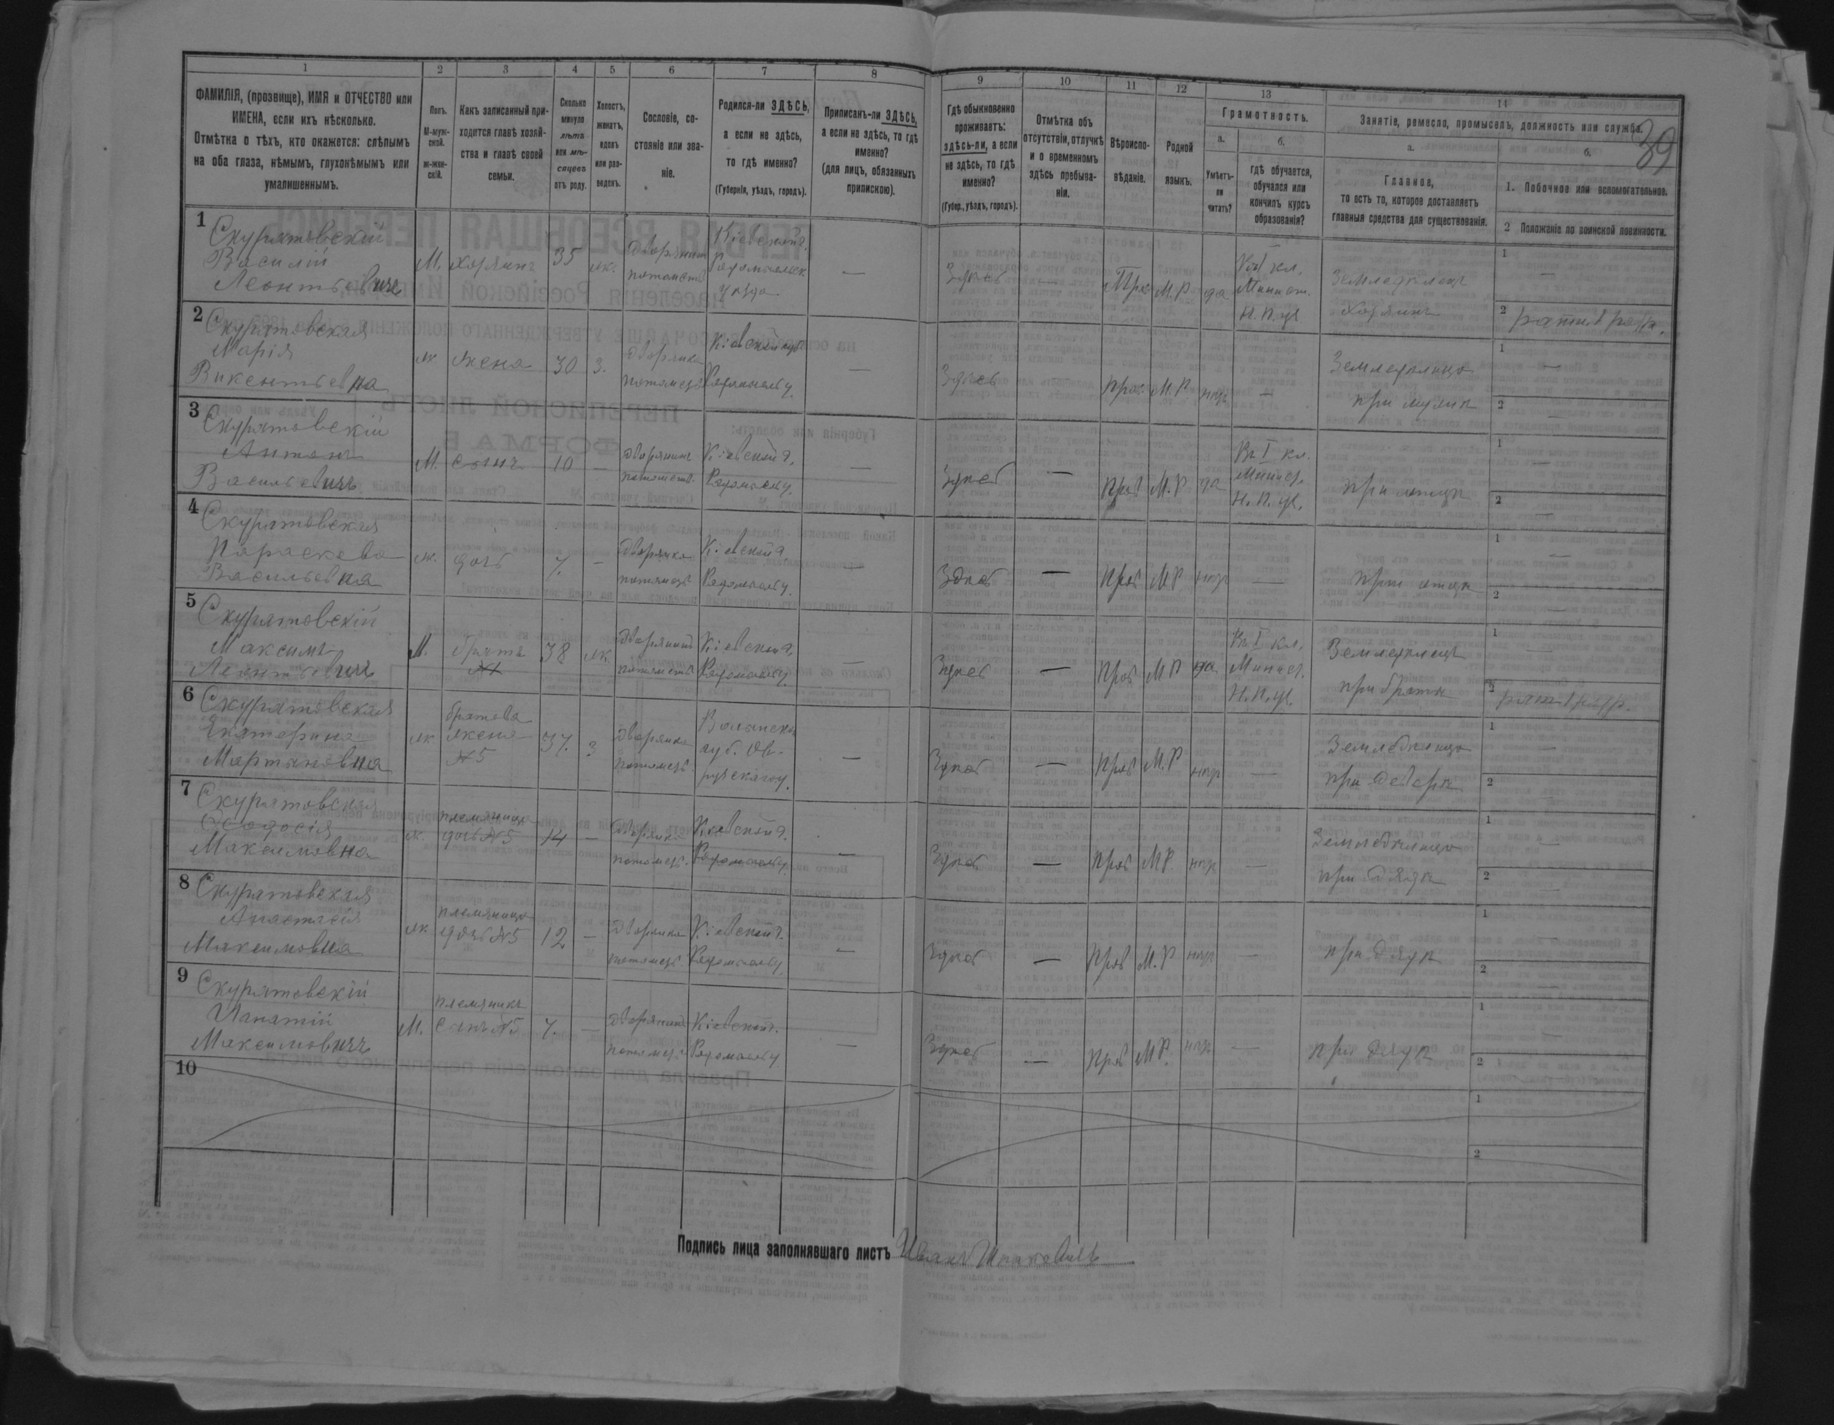 39
1 2 3 4 5 6 7 8 9 10 11 12 13 14
ФАМИЛІЯ, (прозвище), ИМЯ и ОТЧЕСТВО или
ИМЕНА, если ихъ нѣсколько.
Отмѣтка о тѣхъ, кто окажется: слѣпымъ
на оба глаза, нѣмымъ, глухонѣмымъ или
умалишеннымъ.
Полъ.
М-муж-
ской.
ж-жен-
скій.
Какъ записанный при-
ходится главѣ хозяй-
ства и главѣ своей
семьи.
Сколько
минуло
лѣтъ
или мѣ-
сяцевъ
отъ роду.
Холостъ,
женатъ,
вдовъ
или раз-
веденъ.
Сословіе, со-
стояніе или зва-
ніе.
Родился-ли ЗДѢСЬ,
а если не здѣсь,
то гдѣ именно?
(Губернія, уѣздъ, городъ).
Приписанъ-ли ЗДѢСЬ,
а если не здѣсь, то гдѣ
именно?
(для лицъ, обязанныхъ
припискою).
Гдѣ обыкновенно
проживаетъ:
здѣсь-ли, а если
не здѣсь, то гдѣ
именно?
(Губер., уѣздъ, городъ).
Отмѣтка объ
отсутствіи, отлучкѣ
и о временномъ
здѣсь пребыва-
ніи.
Вѣроиспо-
вѣданіе.
Родной
языкъ.
Грамотность.
а.
Умѣетъ-
ли
читать?
б.
гдѣ обучается,
обучался или
кончилъ курсъ
образованія?
Занятіе, ремесло, промыселъ, должность или служба.
а.
Главное,
то есть то, которое доставляетъ
главныя средства для существованія.
б.
1. Побочное или вспомогательное.
2 Положеніе по воинской повинности.
1 Скуратовскій
Василій
Леонтьевичъ
М. хозяинъ 35 ж. дворянин
потомств
Кіевской г.
Радомысльск
уѣзда
— Здѣсь — Пра М.Р да
Минист.
Н. П. уч.
Земледѣлецъ
хозяинъ
1 —
2
2 Скуратовская
Марія
Викентьевна
ж жена 30 з. дворянка
потомст
Кіевской губ
Радомыслу.
— Здѣсь Прав М.Р нѣт —
Земледѣлица
при мужѣ
1 —
2 —
3 Скуратовскій
Антонъ
Васильевичъ
М. сынъ 10 — дворянин
потомств.
Кіевской г.
Радомыслу.
— Здѣсь — Прав М.Р да
Въ I кл.
Минист.
Н. П. уч.
при отцѣ
1 —
2 —
4 Скуратовская
Параскева
Васильевна
ж. дочь 7. — дворянка
потомст
Кіевской г.
Радомыслу.
— Здѣсь — Прав М.Р нѣт —
при отцѣ
1 —
2 —
5 Скуратовскій
Максимъ
Леонтьевичъ
М. братъ
№1
38 ж дворянин
потомств
Кіевской г.
Радомыслу.
— Здѣсь — Прав М.Р да
Въ I кл.
Минист.
Н. П. уч.
Земледѣлецъ
при братѣ
1 —
2
6 Скуратовская
Екатерина
Мартиновна
ж братова
жена
№5
37. з дворянка
потомст
Волынско
губ. Ов-
ручскаго у.
— Здѣсь — Прав М.Р нѣт —
Земледѣлица
при деверѣ
1 —
2
7 Скуратовская
Ѳеодосія
Максимовна
ж. племяница
дочь №5
14 — дворянка
потомст.
Кіевской г.
Радомыслу.
— Здѣсь — Прав М.Р нѣт —
Земледѣлица
при дядѣ
1 —
2 —
8 Скуратовская
Анастасія
Максимовна
ж племяница
дочь №5
12 — дворянка
потомст
Кіевской г.
Радомыслу
— Здѣсь — Прав М.Р нѣт —
при дядѣ
1 —
2 —
9 Скуратовскій
Игнатій
Максимовичъ
М. племяникъ
сынъ №5
7. — дворянин
потомст.
Кіевской г.
Радомыслу
— Здѣсь — Прав М.Р. нѣт —
при дядѣ
1 —
2 —
10
1
2
Подпись лица заполнявшаго листъ Иванъ